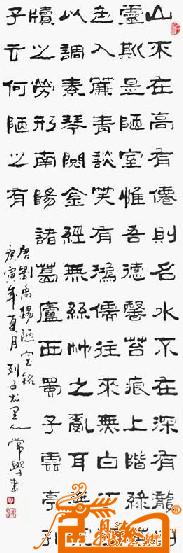 山不在高有僊則名水不在深有龍則
靈斯是陋室惟吾德馨苔痕上階綠
色入簾青談笑有鴻儒往來無白丁
以調素琴閱金經無絲竹之亂耳
牘之勞形南陽諸葛廬西蜀子雲亭孔
子云何陋之有
唐劉禹錫陋室銘
庚寅年夏月